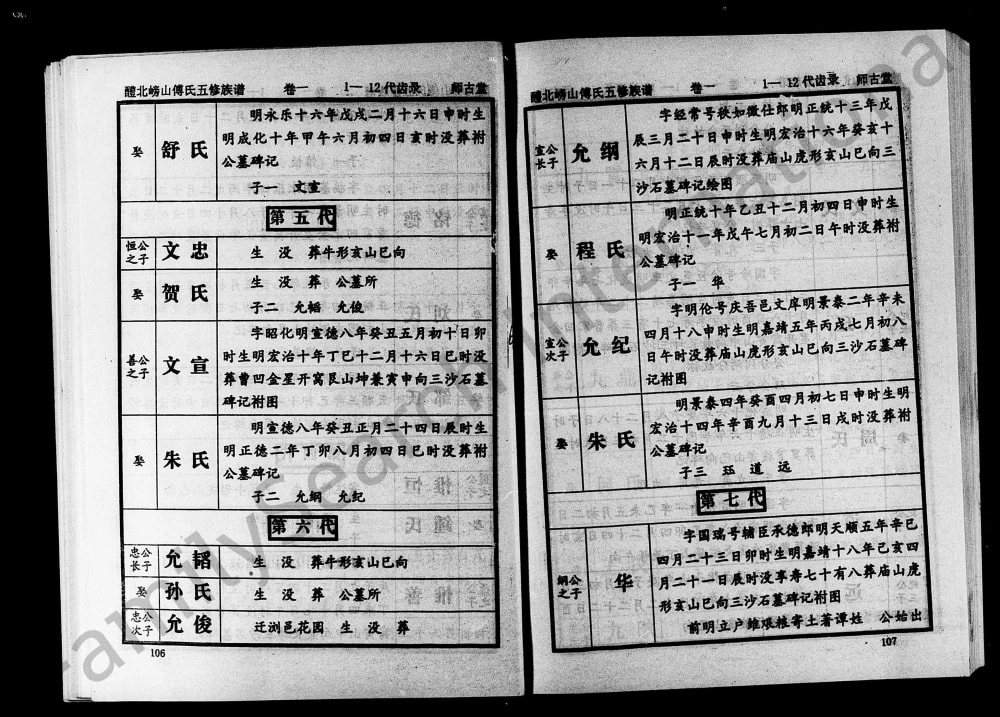 醴北崂山傅氏五修族谱 卷一 1—12代齿录 师古堂
娶 舒氏
明永乐十六年戊戌二月十六日申时生
明成化十年甲午六月初四日亥时没葬祔
公墓碑记
子一 文宣
第五代
恒公之子 文忠
生 没 葬牛形亥山巳向
娶 贺氏
生 没 葬 公墓所
子二 允韬 允俊
善公之子 文宣
字昭化明宣德八年癸丑五月初十日卯
时生明宏治十年丁巳十二月十六日巳时没
葬曹凹金星开窝艮山坤兼寅申向三沙石墓
碑记祔图
娶 朱氏
明宣德八年癸丑正月二十四日辰时生
明正德二年丁卯八月初四日巳时没葬祔
公墓碑记
子二 允纲 允纪
第六代
忠公长子 允韬
生 没 葬牛形亥山巳向
娶 孙氏
生 没 葬 公墓所
忠公次子 允俊
迁浏邑花园 生 没 葬
106
醴北崂山傅氏五修族谱 卷一 1—12代齿录 师古堂
宣公长子 允纲
字经常号秩如徵仕郎明正统十三年戊
辰三月二十日申时生明宏治十六年癸亥十
六月十二日辰时没葬庙山虎形亥山巳向三
沙石墓碑记绘图
娶 程氏
明正统十年乙丑十二月初四日申时生
明宏治十一年戊午七月初二日午时没葬祔
公墓碑记
子一 华
宣公次子 允纪
字明伦号庆吾邑文庠明景泰二年辛未
四月十八申时生明嘉靖五年丙戌七月初八
日午时没葬庙山虎形亥山巳向三沙石墓碑
记祔图
娶 朱氏
明景泰四年癸酉四月初七日申时生明
宏治十四年辛酉九月十三日戌时没葬祔
公墓碑记
子三 珏 道 远
第七代
纲公之子 华
字国瑞号辅臣承德郎明天顺五年辛巳
四月二十三日卯时生明嘉靖十八年己亥四
月二十一日辰时没享寿七十有八葬庙山虎
形亥山巳向三沙石墓碑记祔图
前明立户雉艰稚寄土著谭姓 公始出
107
familysearch international